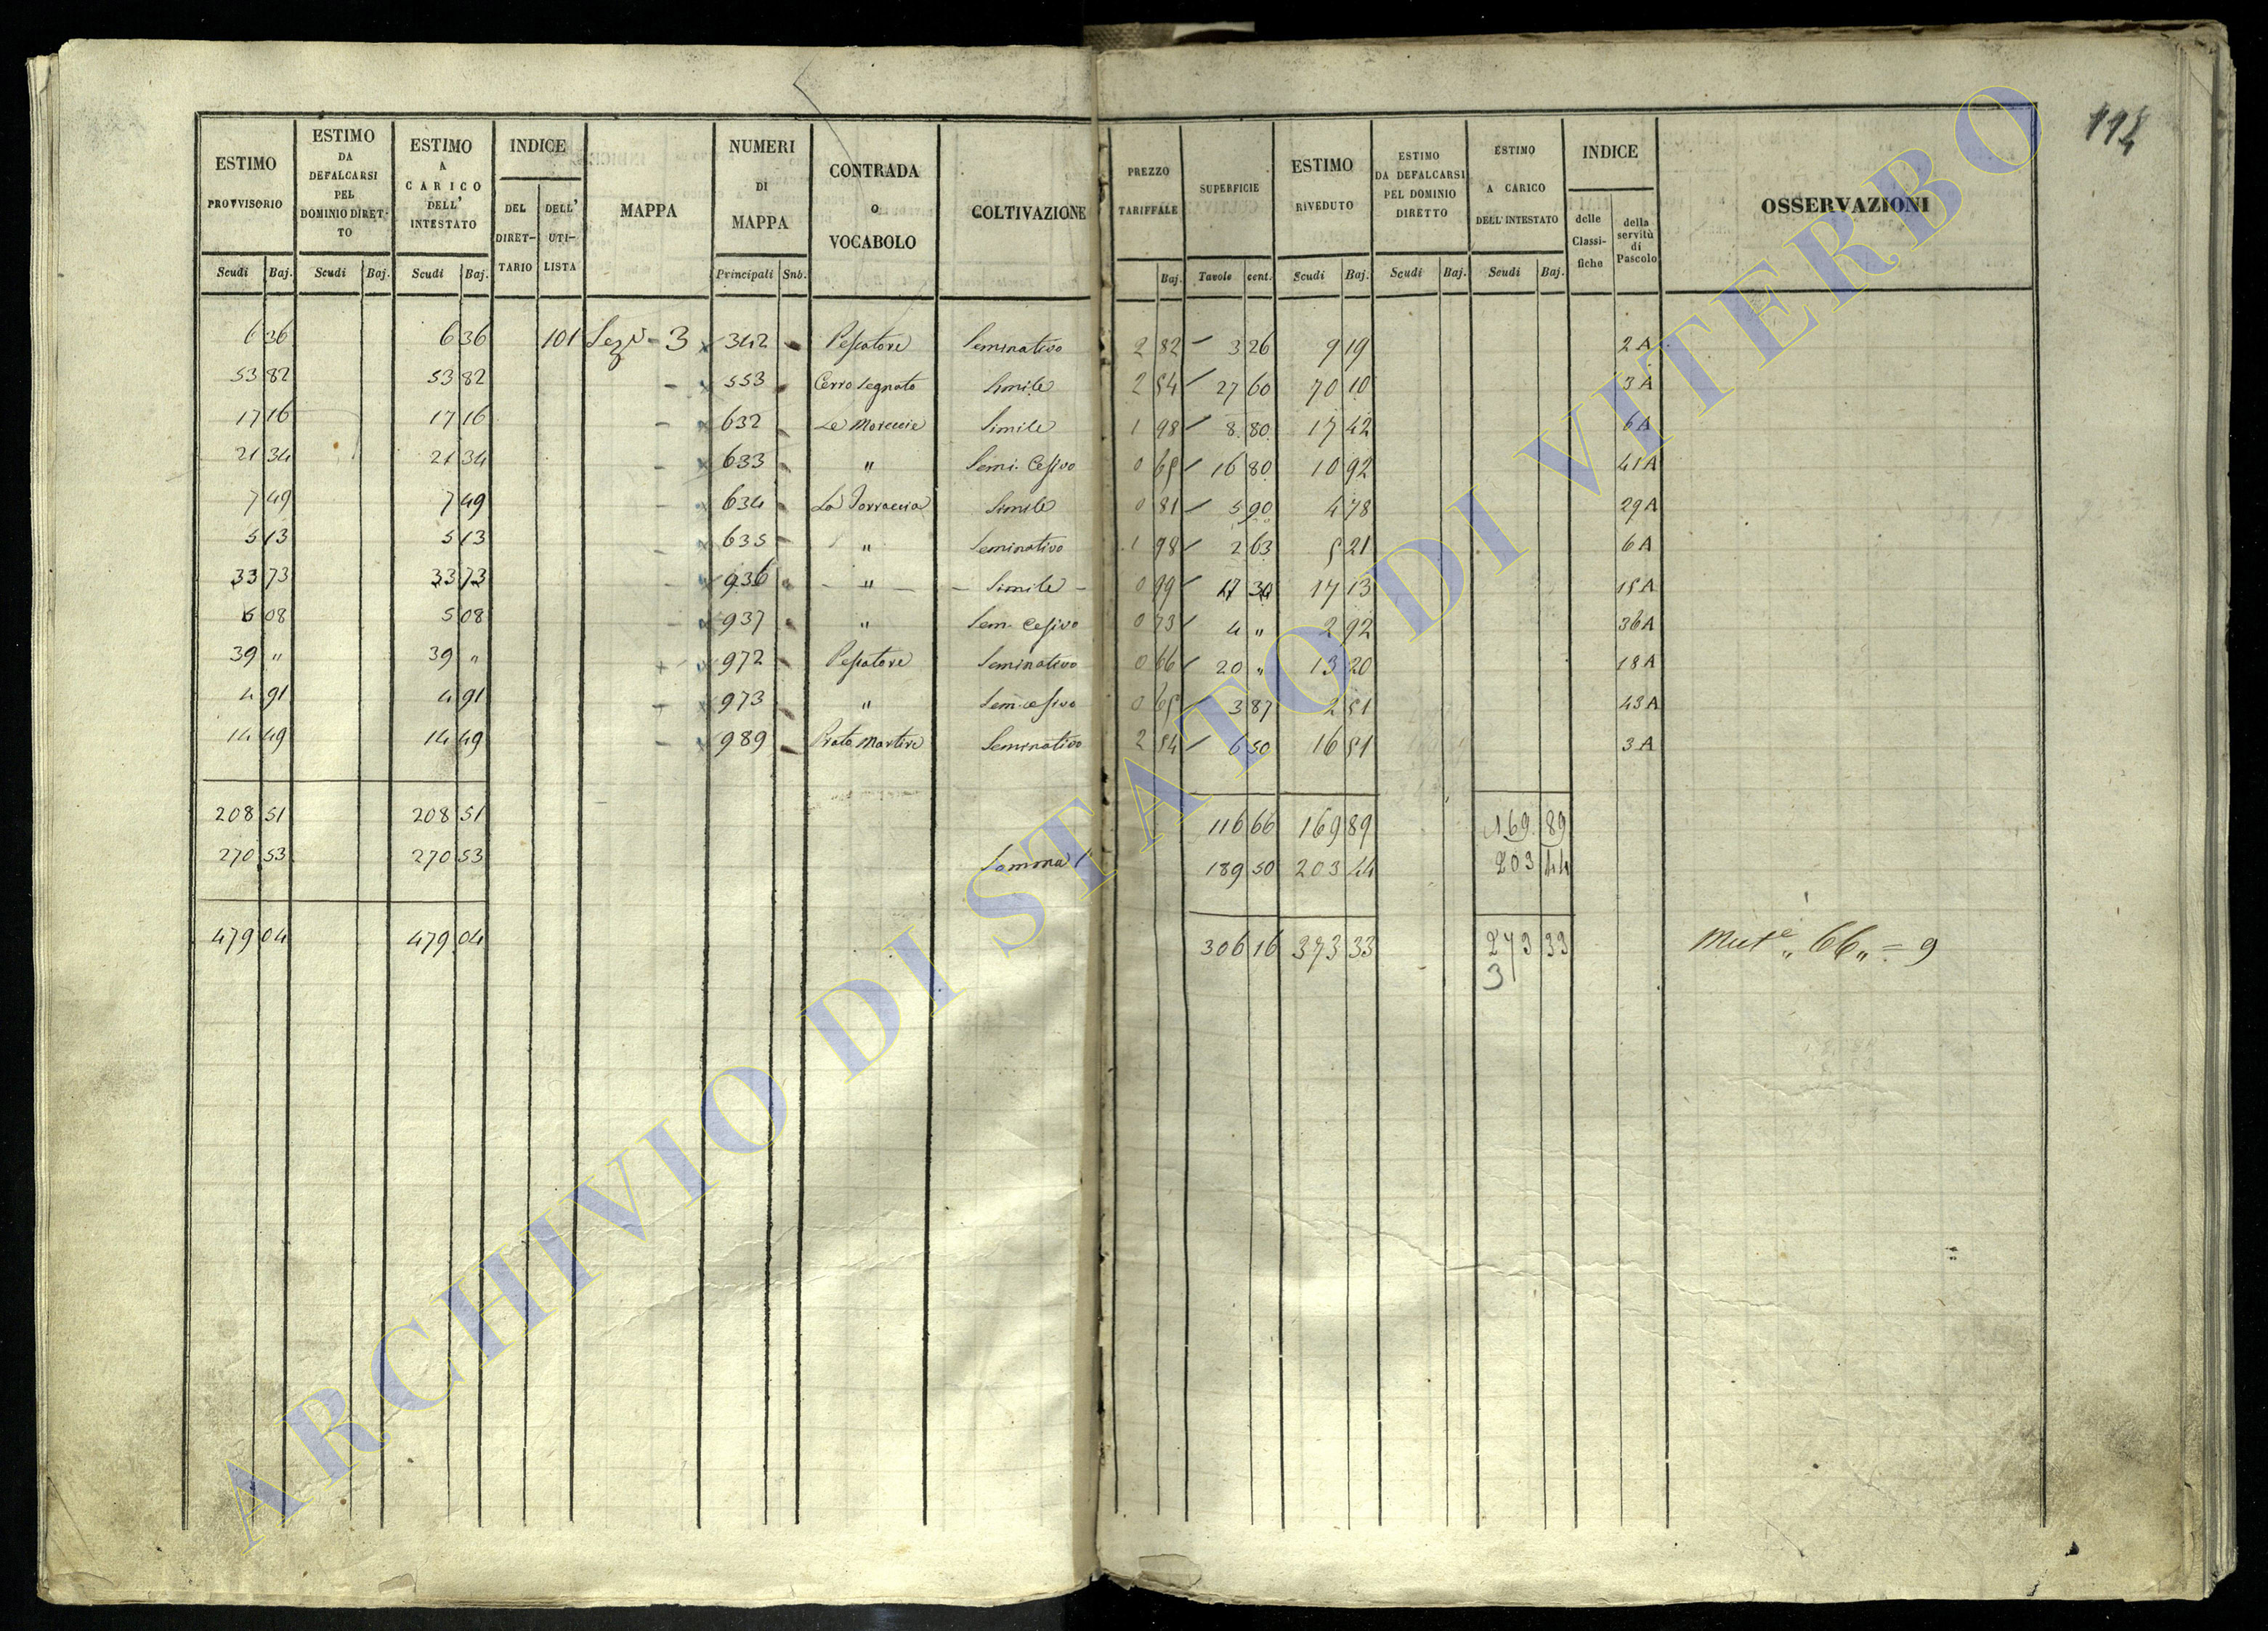 114
ESTIMO PROVVISORIO
ESTIMO DA DEFALCARSI PEL DOMINIO DIRET-TO
ESTIMO A CARICO DELL' INTESTATO
INDICE
DEL DIRET-TARIO
DELL' UTI-LISTA
MAPPA
NUMERI DI MAPPA
CONTRADA O VOCABOLO
COLTIVAZIONE
PREZZO TARIFFALE
SUPERFICIE
ESTIMO RIVEDUTO
ESTIMO DA DEFALCARSI PEL DOMINIO DIRETTO
ESTIMO A CARICO DELL'INTESTATO
INDICE
delle Classi-fiche
della servitù di Pascolo
OSSERVAZIONI
Scudi Baj. Scudi Baj. Scudi Baj. Principali Snb. Baj. Tavole cent. Scudi Baj. Scudi Baj. Scudi Baj.
6 36 6 36 101 Sez. 3 342 Pescatore Seminativo 2 82 3 26 9 19 2 A
53 82 53 82 553 Cerro segnato Simile 2 54 27 60 70 10 3 A
17 16 17 16 632 Le Morcucie Simile 1 98 8 80 17 42 6 A
21 34 21 34 633 " Semi. Cesivo 0 65 16 80 10 92 41 A
7 49 7 49 634 La Torraccia Simile 0 81 5 90 4 78 29 A
5 13 5 13 635 " Seminativo 1 98 2 63 5 21 6 A
33 73 33 73 936 " Simile 0 99 17 30 17 13 15 A
5 08 5 08 937 " Sem. Cesivo 0 73 4 " 2 92 36 A
39 " 39 " 972 Pescatore Seminativo 0 66 20 " 13 20 18 A
4 91 4 91 973 " Sem. cesivo 0 65 3 87 2 51 43 A
14 49 14 49 989 Prato Martire Seminativo 2 54 6 50 16 51 3 A
208 51 208 51 116 66 169 89 169 89
270 53 270 53 Somma 189 50 203 44 203 44
479 04 479 04 306 16 373 33 273 33 66 " = 9
3
ARCHIVIO DI STATO DI VITERBO